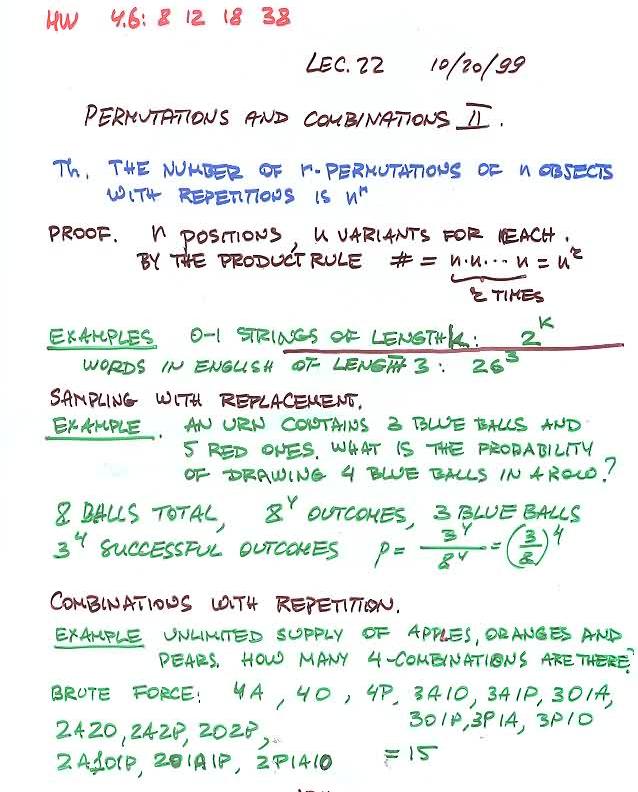 HW 4.6: 8 12 18 38
LEC. 22 10/20/99
PERMUTATIONS AND COMBINATIONS II.
Th. THE NUMBER OF r-PERMUTATIONS OF n OBJECTS
WITH REPETITIONS IS n^r
PROOF. n POSITIONS, n VARIANTS FOR EACH.
BY THE PRODUCT RULE # = n·n·... n = n^r
r TIMES
EXAMPLES 0-1 STRINGS OF LENGTH k: 2^k
WORDS IN ENGLISH OF LENGTH 3: 26^3
SAMPLING WITH REPLACEMENT.
EXAMPLE. AN URN CONTAINS 3 BLUE BALLS AND
5 RED ONES. WHAT IS THE PROBABILITY
OF DRAWING 4 BLUE BALLS IN A ROW?
8 BALLS TOTAL, 8^4 OUTCOMES, 3 BLUE BALLS
3^4 SUCCESSFUL OUTCOMES p = 3^4/8^4 = (3/8)^4
COMBINATIONS WITH REPETITION.
EXAMPLE UNLIMITED SUPPLY OF APPLES, ORANGES AND
PEARS. HOW MANY 4-COMBINATIONS ARE THERE?
BRUTE FORCE: 4A, 4O, 4P, 3A1O, 3A1P, 3O1A,
3O1P, 3P1A, 3P1O
2A2O, 2A2P, 2O2P,
2A1O1P, 2O1A1P, 2P1A1O = 15